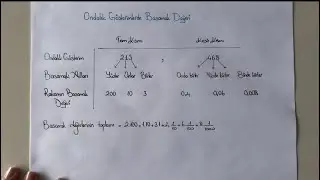 Ondalık Gösterimlerde Basamak Değeri
Tam kısım Kesir kısmı
Ondalık Gösterim 213 , 468
Basamak Adları Yüzler Onlar Birler Onda birler Yüzde birler Binde birler
Rakamın Basamak Değeri 200 10 3 0,4 0,06 0,008
Basamak değerlerinin toplamı =